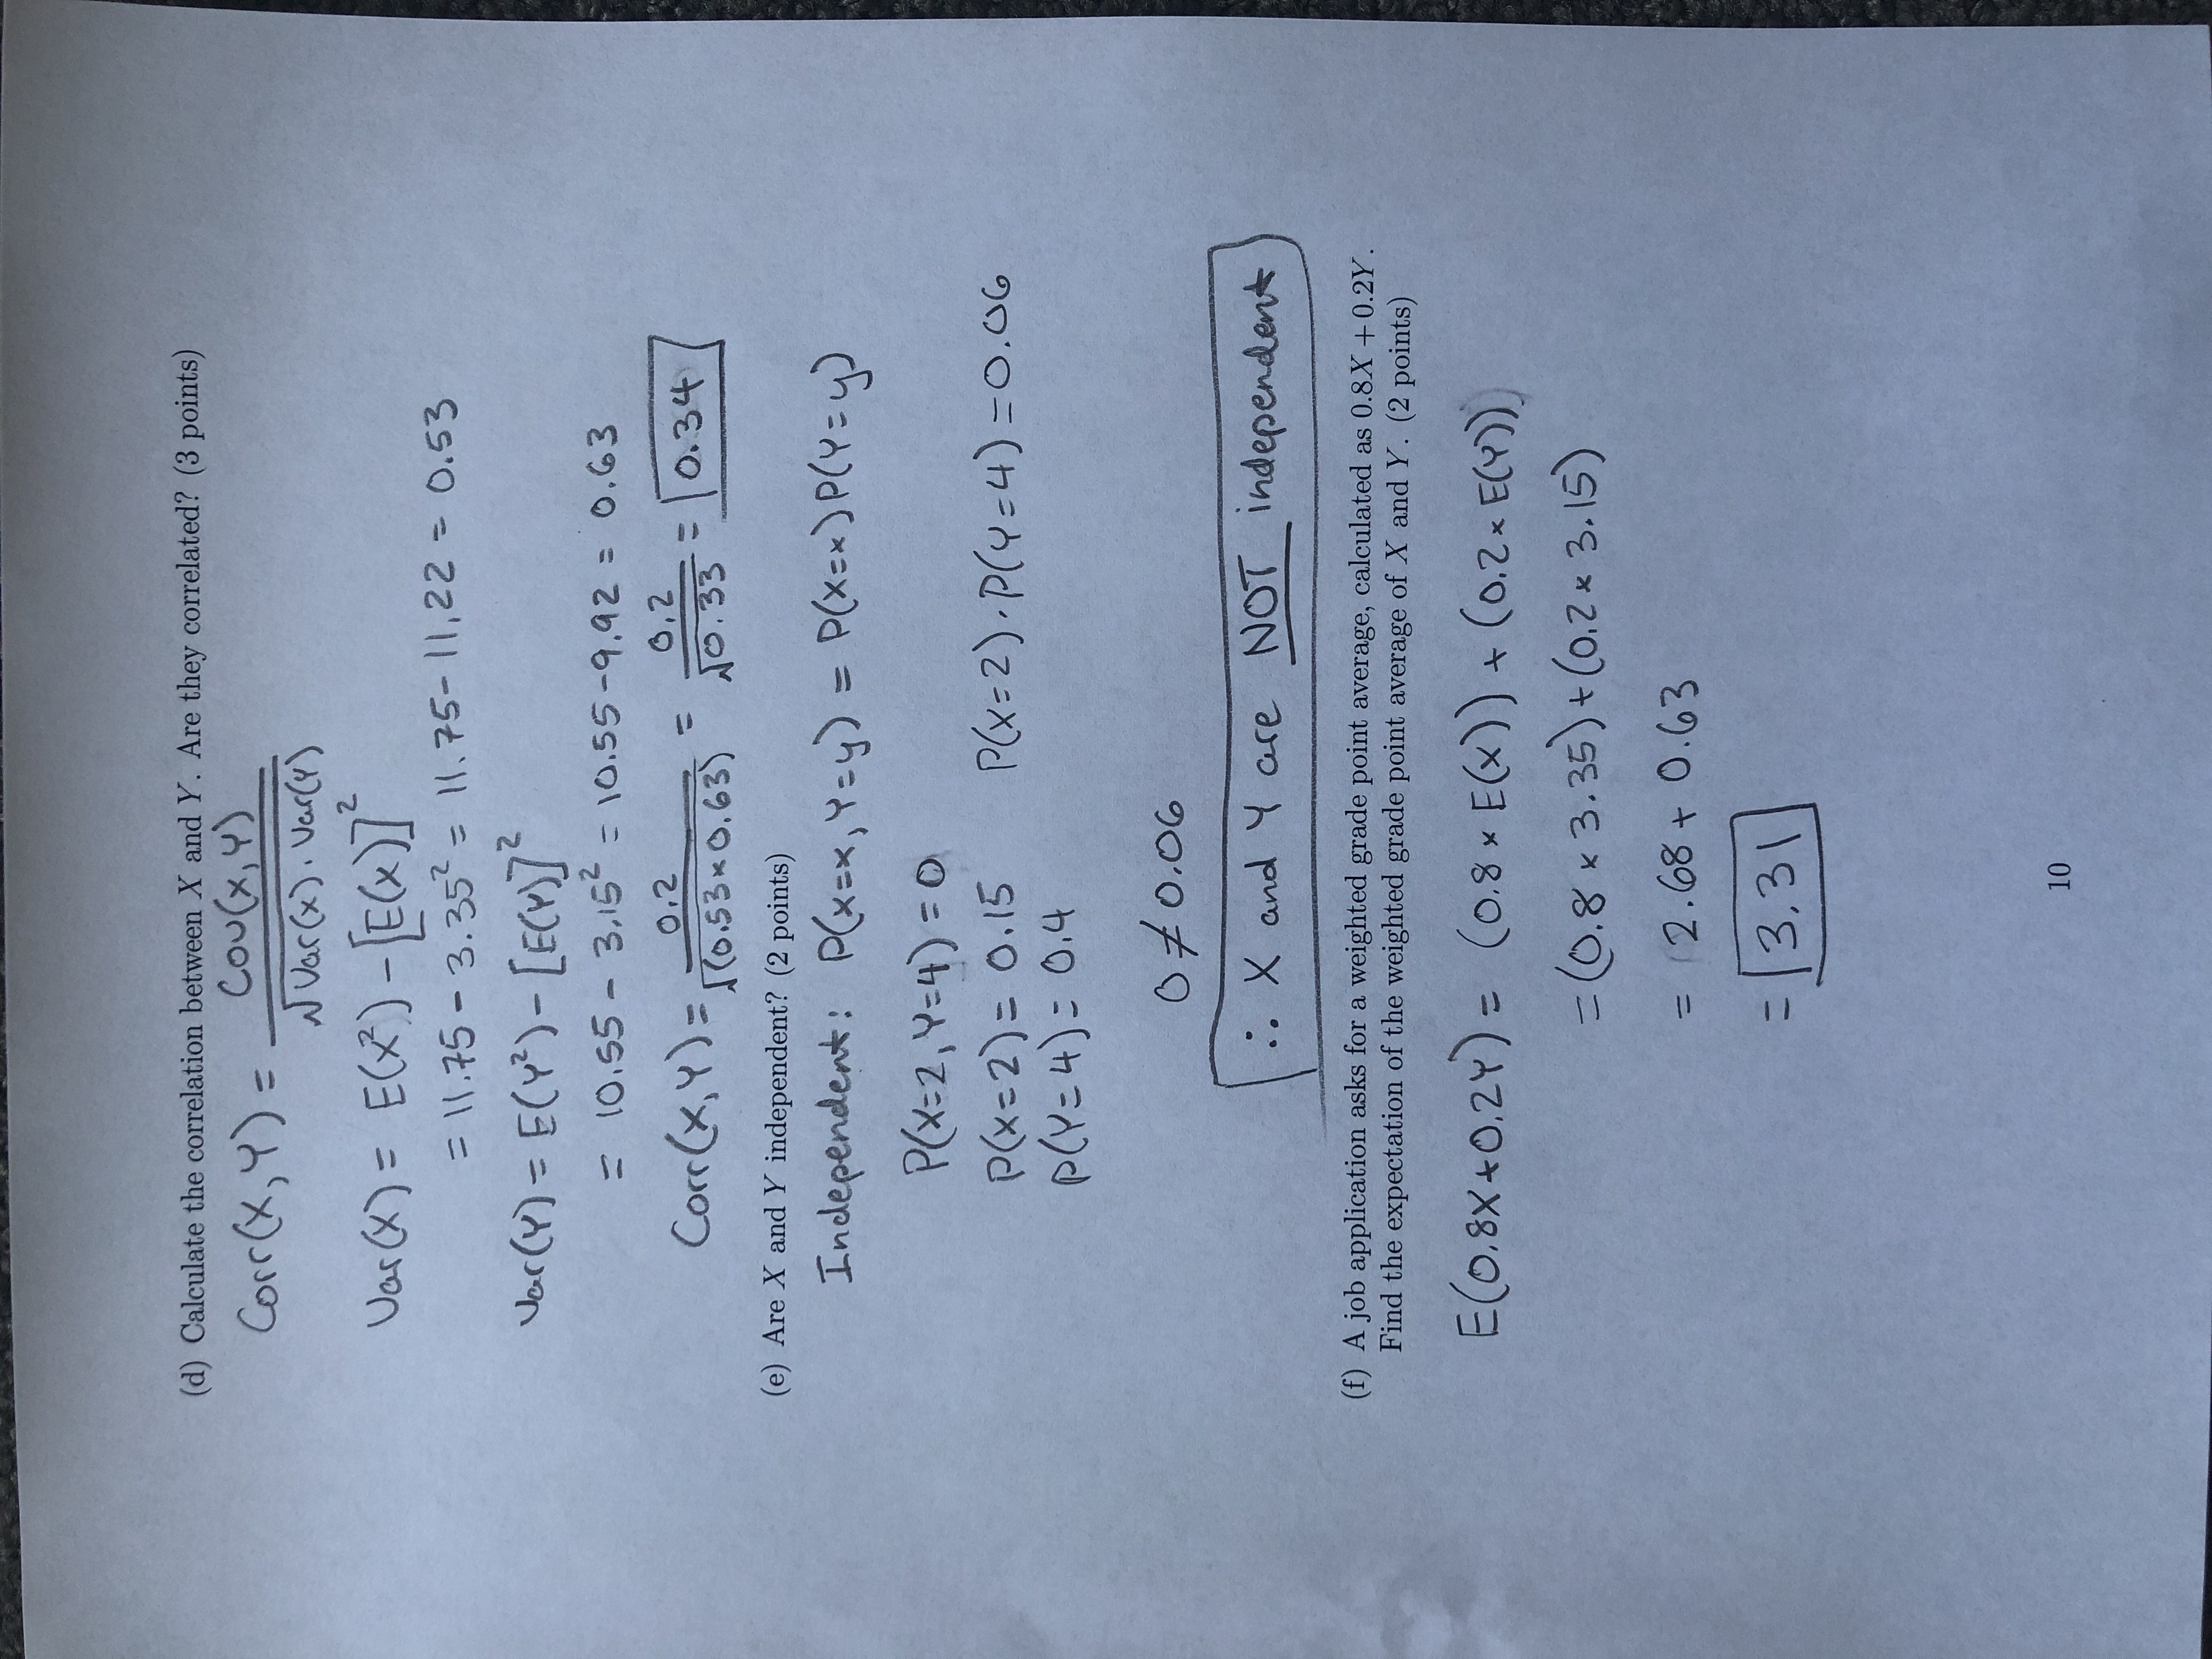 (d) Calculate the correlation between X and Y. Are they correlated? (3 points)
Corr(X,Y) = Cov(X,Y) / √Var(X) · Var(Y)
Var(X) = E(X²) - [E(X)]²
= 11.75 - 3.35² = 11.75 - 11.22 = 0.53
Var(Y) = E(Y²) - [E(Y)]²
= 10.55 - 3.15² = 10.55 - 9.92 = 0.63
Corr(X,Y) = 0.2 / √(0.53 × 0.63) = 0.2 / √0.33 = 0.34
(e) Are X and Y independent? (2 points)
Independent: P(X=x, Y=y) = P(X=x)P(Y=y)
P(X=2, Y=4) = 0
P(X=2) = 0.15 P(X=2) · P(Y=4) = 0.06
P(Y=4) = 0.4
0 ≠ 0.06
∴ X and Y are NOT independent
(f) A job application asks for a weighted grade point average, calculated as 0.8X + 0.2Y.
Find the expectation of the weighted grade point average of X and Y. (2 points)
E(0.8X + 0.2Y) = (0.8 × E(X)) + (0.2 × E(Y))
= (0.8 × 3.35) + (0.2 × 3.15)
= 2.68 + 0.63
= 3.31
10